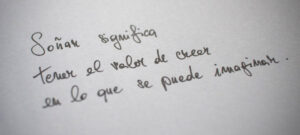 Soñar significa
tener el valor de creer
en lo que se puede imaginar.